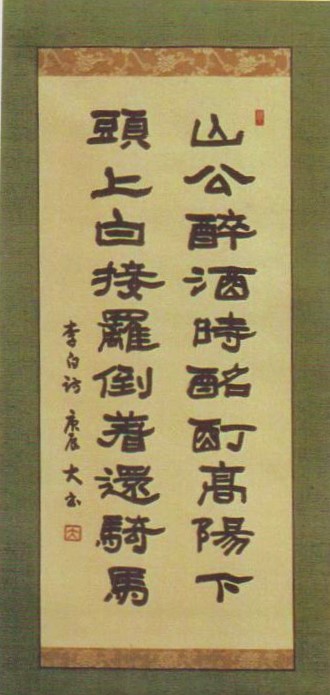 山公醉酒時酩酊髙陽下
頭上白接羅倒着還騎馬
李白詩 庚辰 大